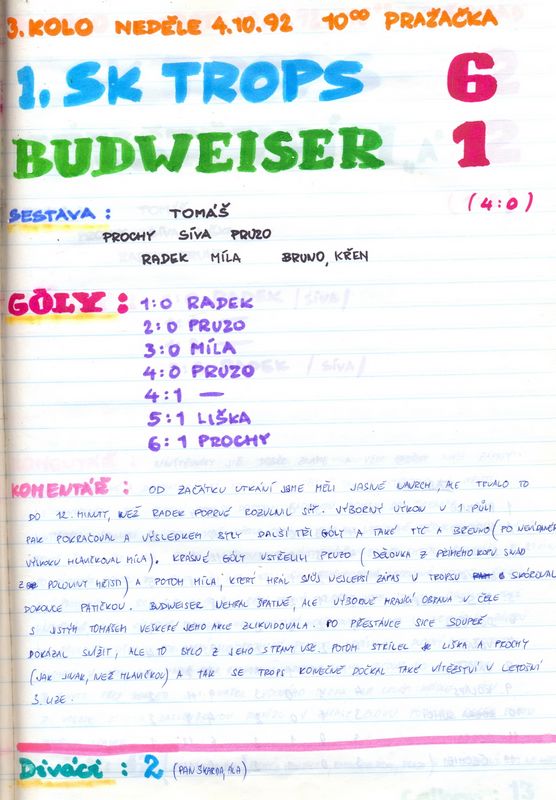 3. KOLO NEDĚLE 4.10.92 10⁰⁰ PRAŽAČKA
1. SK TROPS 6
BUDWEISER 1
(4:0)
SESTAVA : TOMÁŠ
PROCHY SÍVA PRUZO
RADEK MÍLA BRUNO, KŘEN
GÓLY : 1:0 RADEK
2:0 PRUZO
3:0 MÍLA
4:0 PRUZO
4:1 —
5:1 LIŠKA
6:1 PROCHY
KOMENTÁŘ : OD ZAČÁTKU UTKÁNÍ JSME MĚLI JASNĚ NAVRCH, ALE TRVALO TO
DO 12. MINUTY, NEŽ RADEK POPRVÉ ROZVLNIL SÍŤ. VÝBORNÝ VÝKON V 1. PŮLI
PAK POKRAČOVAL A VÝSLEDKEM BYLY DALŠÍ TŘI GÓLY A TAKÉ TYČ A BŘEVNO (PO
VÝKOKU HLAVIČKOVAL MÍLA). KRÁSNÉ GÓLY VSTŘELILI PRUZO (DĚLOVKA Z PŘÍMÉHO KOPU SNAD
Z POLOVINY HŘIŠTĚ) A POTOM MÍLA, KTERÝ HRÁL SVŮJ NEJLEPŠÍ ZÁPAS V TROPSU A SKÓROVAL
DOKONCE PATIČKOU. BUDWEISER NEHRÁL ŠPATNĚ, ALE VÝBORNĚ HRAJÍCÍ OBRANA V ČELE
S JISTÝM TOMÁŠEM VEŠKERÉ JEHO AKCE ZLIKVIDOVALA. PO PŘESTÁVCE SICE SOUPEŘ
DOKÁZAL SNÍŽIT, ALE TO BYLO Z JEHO STRANY VŠE. POTOM STŘÍLEL LIŠKA A PROCHY
(JAK JINAK, NEŽ HLAVIČKOU) A TAK SE TROPS KONEČNĚ DOČKAL TAKÉ VÍTĚZSTVÍ V LETOŠNÍ
3. LIZE.
Diváci : 2 (PAN ŠKARDA,